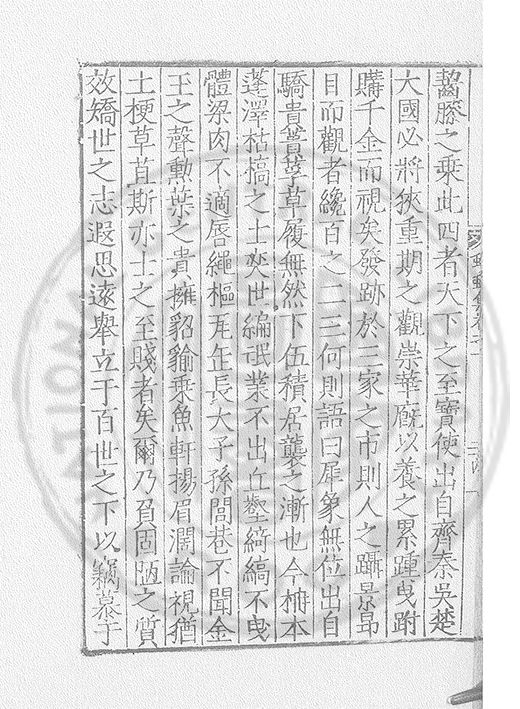 齧膝之乘此四者天下之至寶使出自齊秦吳楚
大國必將狹重期之觀崇華廐以養之累踵曳跗
購千金而視矣發跡於三家之市則人之躡景昂
目而觀者纔百之一二三何則語曰犀象無位出自
驕貴蒉莩草履無然下伍積居襲之漸也今栴本
蓬澤枯槁之士奕世編氓業不出丘壑綺縞不曳
體粱肉不適唇繩樞瓦缶長大子孫閭巷不聞金
王之聲勲葉之貴擁貂貐乘魚軒揚眉濶論視猶
士梗草苴斯亦士之至賤者矣爾乃負固陋之質
效矯世之志遐思遠舉立于百世之下以竊慕于